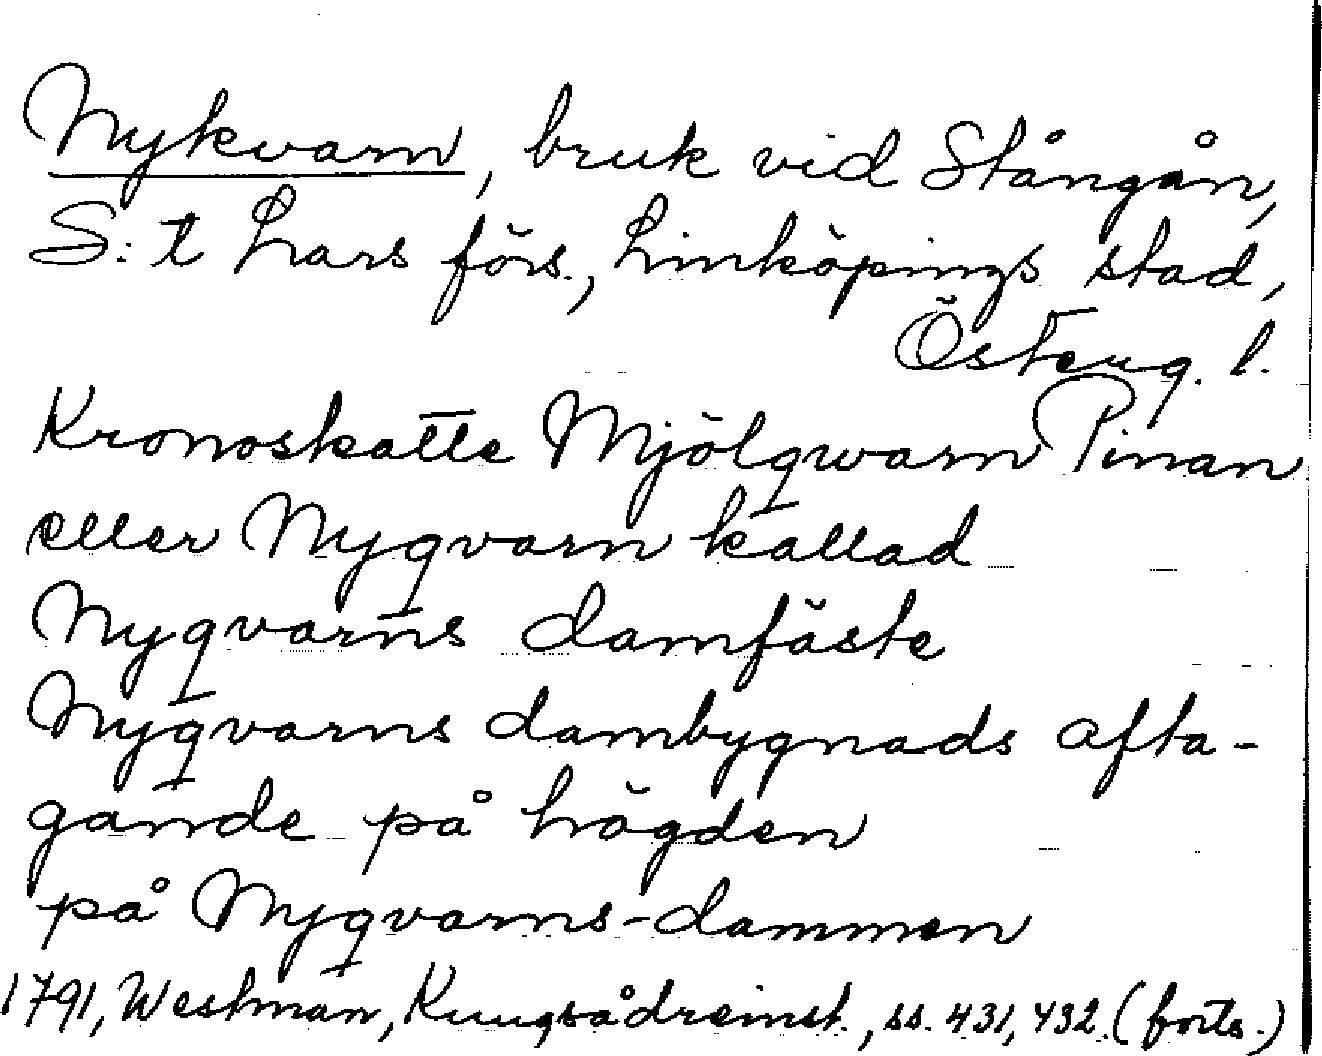 Nykvarn, bruk vid Stångån,
S:t Lars förs., Linköpings stad,
Österg. l.
Kronoskatte Mjölqwarn Pinan
eller Nyqvarn kallad
Nyqvarns damfäste
Nyqvarns dambygnads afta-
gande på högden
på Nyqvarns-dammen
1791, Westman, Kungsådreinst., ss. 431, 432 (forts.)